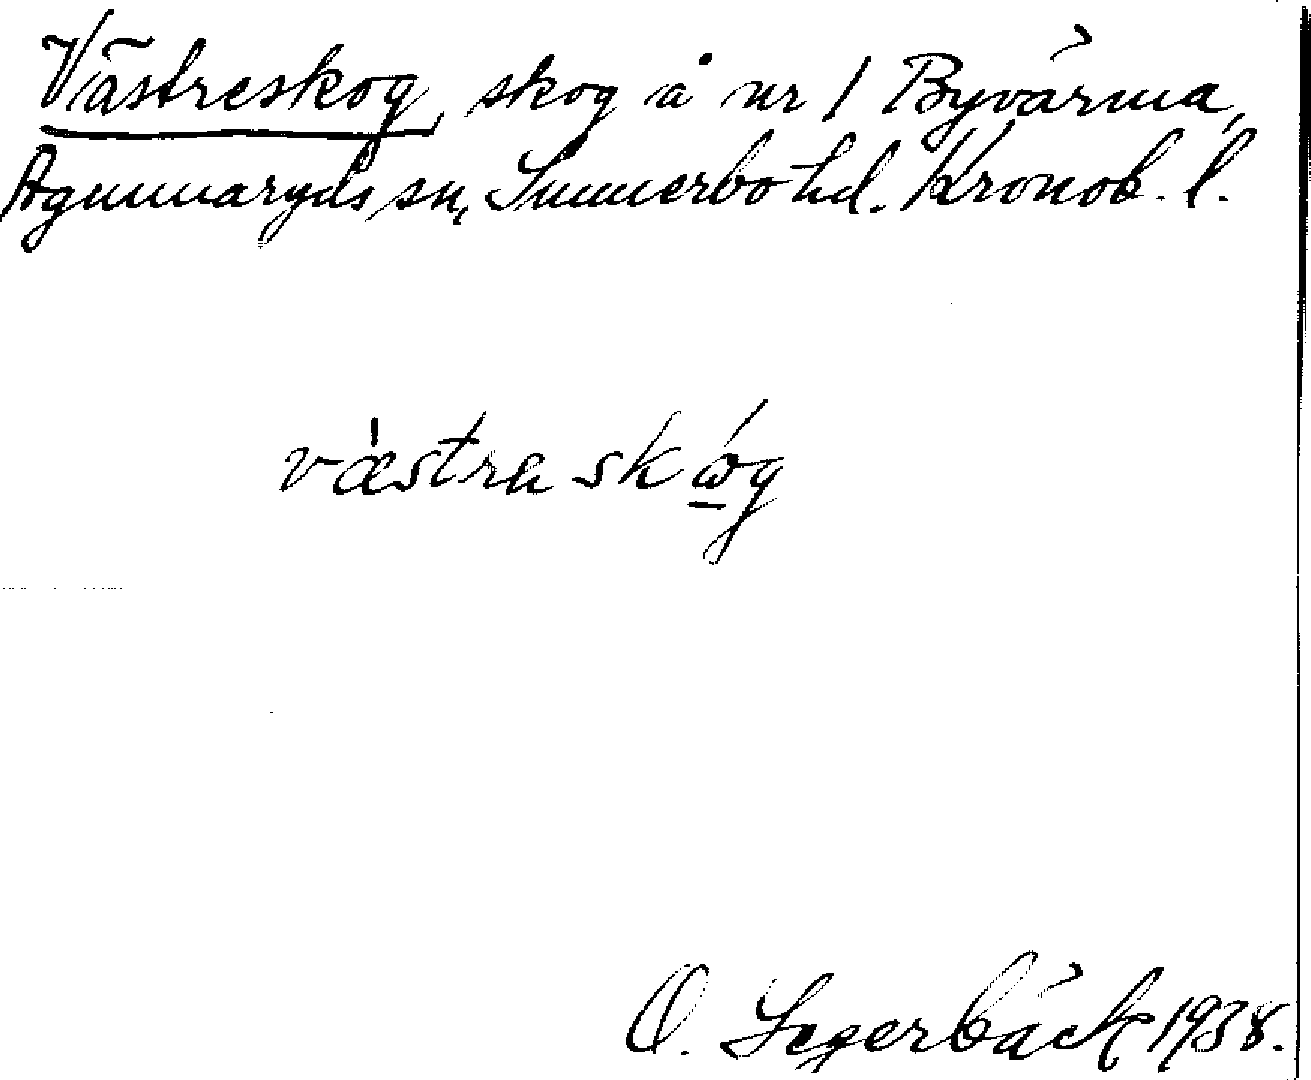 Västreskog, skog å nr 1 Byvärma,
Agunnaryds sn, Sunnerbo hd. Kronob. l.
væstra skog
O. Segerbäck 1938.